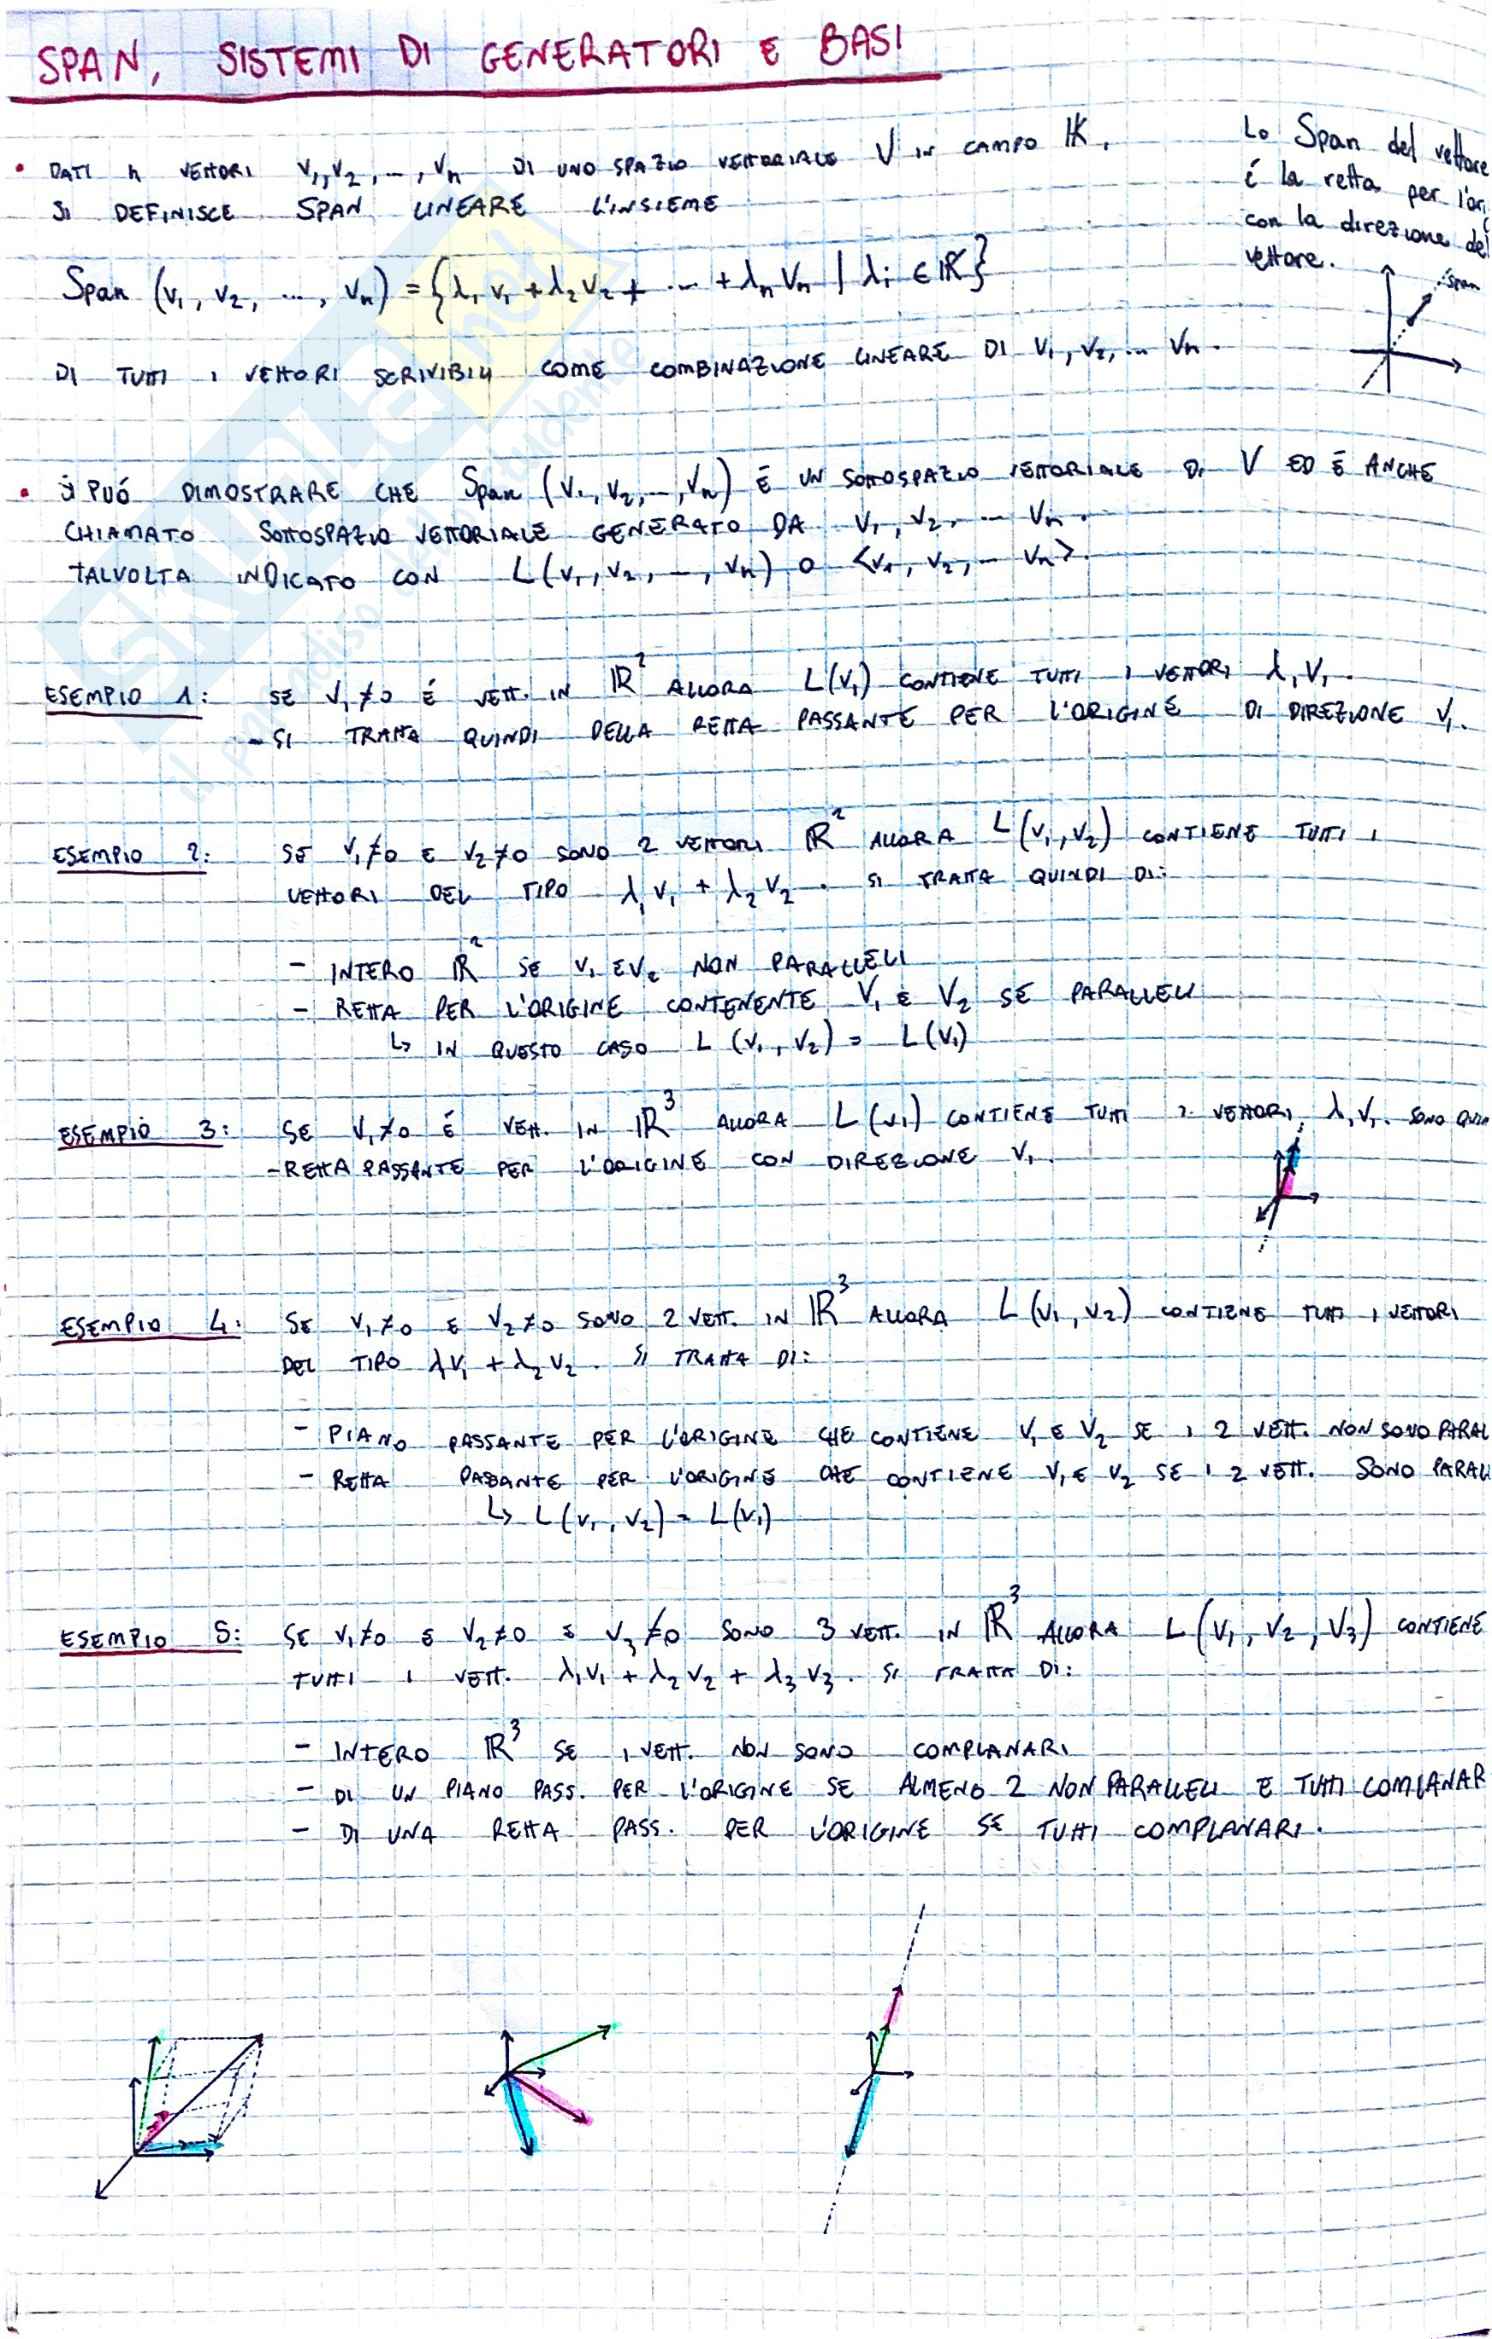 SPAN, SISTEMI DI GENERATORI E BASI
• DATI n VETTORI v₁, v₂, ..., vₙ DI UNO SPAZIO VETTORIALE V IN CAMPO K,
SI DEFINISCE SPAN LINEARE L'INSIEME
Span (v₁, v₂, ..., vₙ) = {λ₁ v₁ + λ₂ v₂ + ... + λₙ vₙ | λᵢ ∈ K}
DI TUTTI I VETTORI SCRIVIBILI COME COMBINAZIONE LINEARE DI v₁, v₂, ... vₙ.
Lo Span del vettore
é la retta per l'ori
con la direzione del
vettore.
span
• SI PUÓ DIMOSTRARE CHE Span (v₁, v₂, ..., vₙ) É UN SOTTOSPAZIO VETTORIALE DI V ED É ANCHE
CHIAMATO SOTTOSPAZIO VETTORIALE GENERATO DA v₁, v₂, ... vₙ.
TALVOLTA INDICATO CON L(v₁, v₂, ..., vₙ) O <v₁, v₂, ... vₙ>.
ESEMPIO 1: SE v₁≠0 É VETT. IN ℝ² ALLORA L(v₁) CONTIENE TUTTI I VETTORI λ₁v₁.
- SI TRATTA QUINDI DELLA RETTA PASSANTE PER L'ORIGINE DI DIREZIONE v₁.
ESEMPIO 2: SE v₁≠0 E v₂≠0 SONO 2 VETTORI ℝ² ALLORA L(v₁, v₂) CONTIENE TUTTI I
VETTORI DEL TIPO λ₁v₁ + λ₂v₂. SI TRATTA QUINDI DI:
- INTERO ℝ² SE v₁ E v₂ NON PARALLELI
- RETTA PER L'ORIGINE CONTENENTE v₁ E v₂ SE PARALLELI
↳ IN QUESTO CASO L (v₁, v₂) = L(v₁)
ESEMPIO 3: SE v₁≠0 É VETT. IN ℝ³ ALLORA L(v₁) CONTIENE TUTTI I VETTORI λ₁v₁. SONO QUIN
- RETTA PASSANTE PER L'ORIGINE CON DIREZIONE v₁.
ESEMPIO 4: SE v₁≠0 E v₂≠0 SONO 2 VETT. IN ℝ³ ALLORA L(v₁, v₂) CONTIENE TUTTI I VETTORI
DEL TIPO λv₁ + λ₂v₂. SI TRATTA DI:
- PIANO PASSANTE PER L'ORIGINE CHE CONTIENE v₁ E v₂ SE I 2 VETT. NON SONO PARAL
- RETTA PASSANTE PER L'ORIGINE CHE CONTIENE v₁ E v₂ SE I 2 VETT. SONO PARAL
↳ L(v₁, v₂) = L(v₁)
ESEMPIO 5: SE v₁≠0 E v₂≠0 E v₃≠0 SONO 3 VETT. IN ℝ³ ALLORA L(v₁, v₂, v₃) CONTIENE
TUTTI I VETT. λ₁v₁ + λ₂v₂ + λ₃v₃. SI TRATTA DI:
- INTERO ℝ³ SE I VETT. NON SONO COMPLANARI
- DI UN PIANO PASS. PER L'ORIGINE SE ALMENO 2 NON PARALLELI E TUTTI COMLANAR
- DI UNA RETTA PASS. PER L'ORIGINE SE TUTTI COMPLANARI.